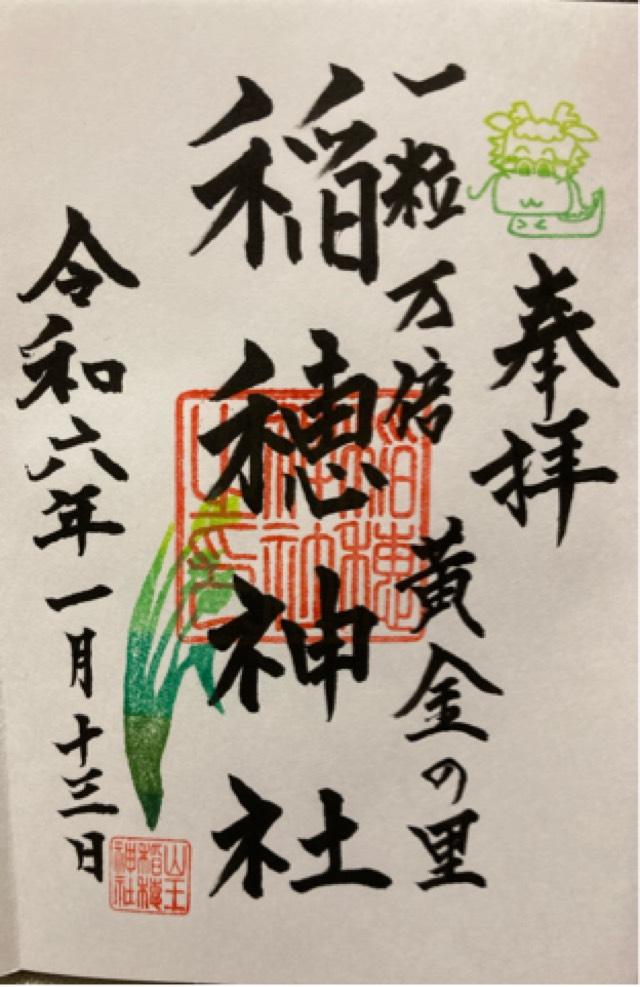 奉拝
一粒万倍 黄金の里
稲穂神社
令和六年一月十三日
稲穂
神社
之印
山王
稲穂
神社